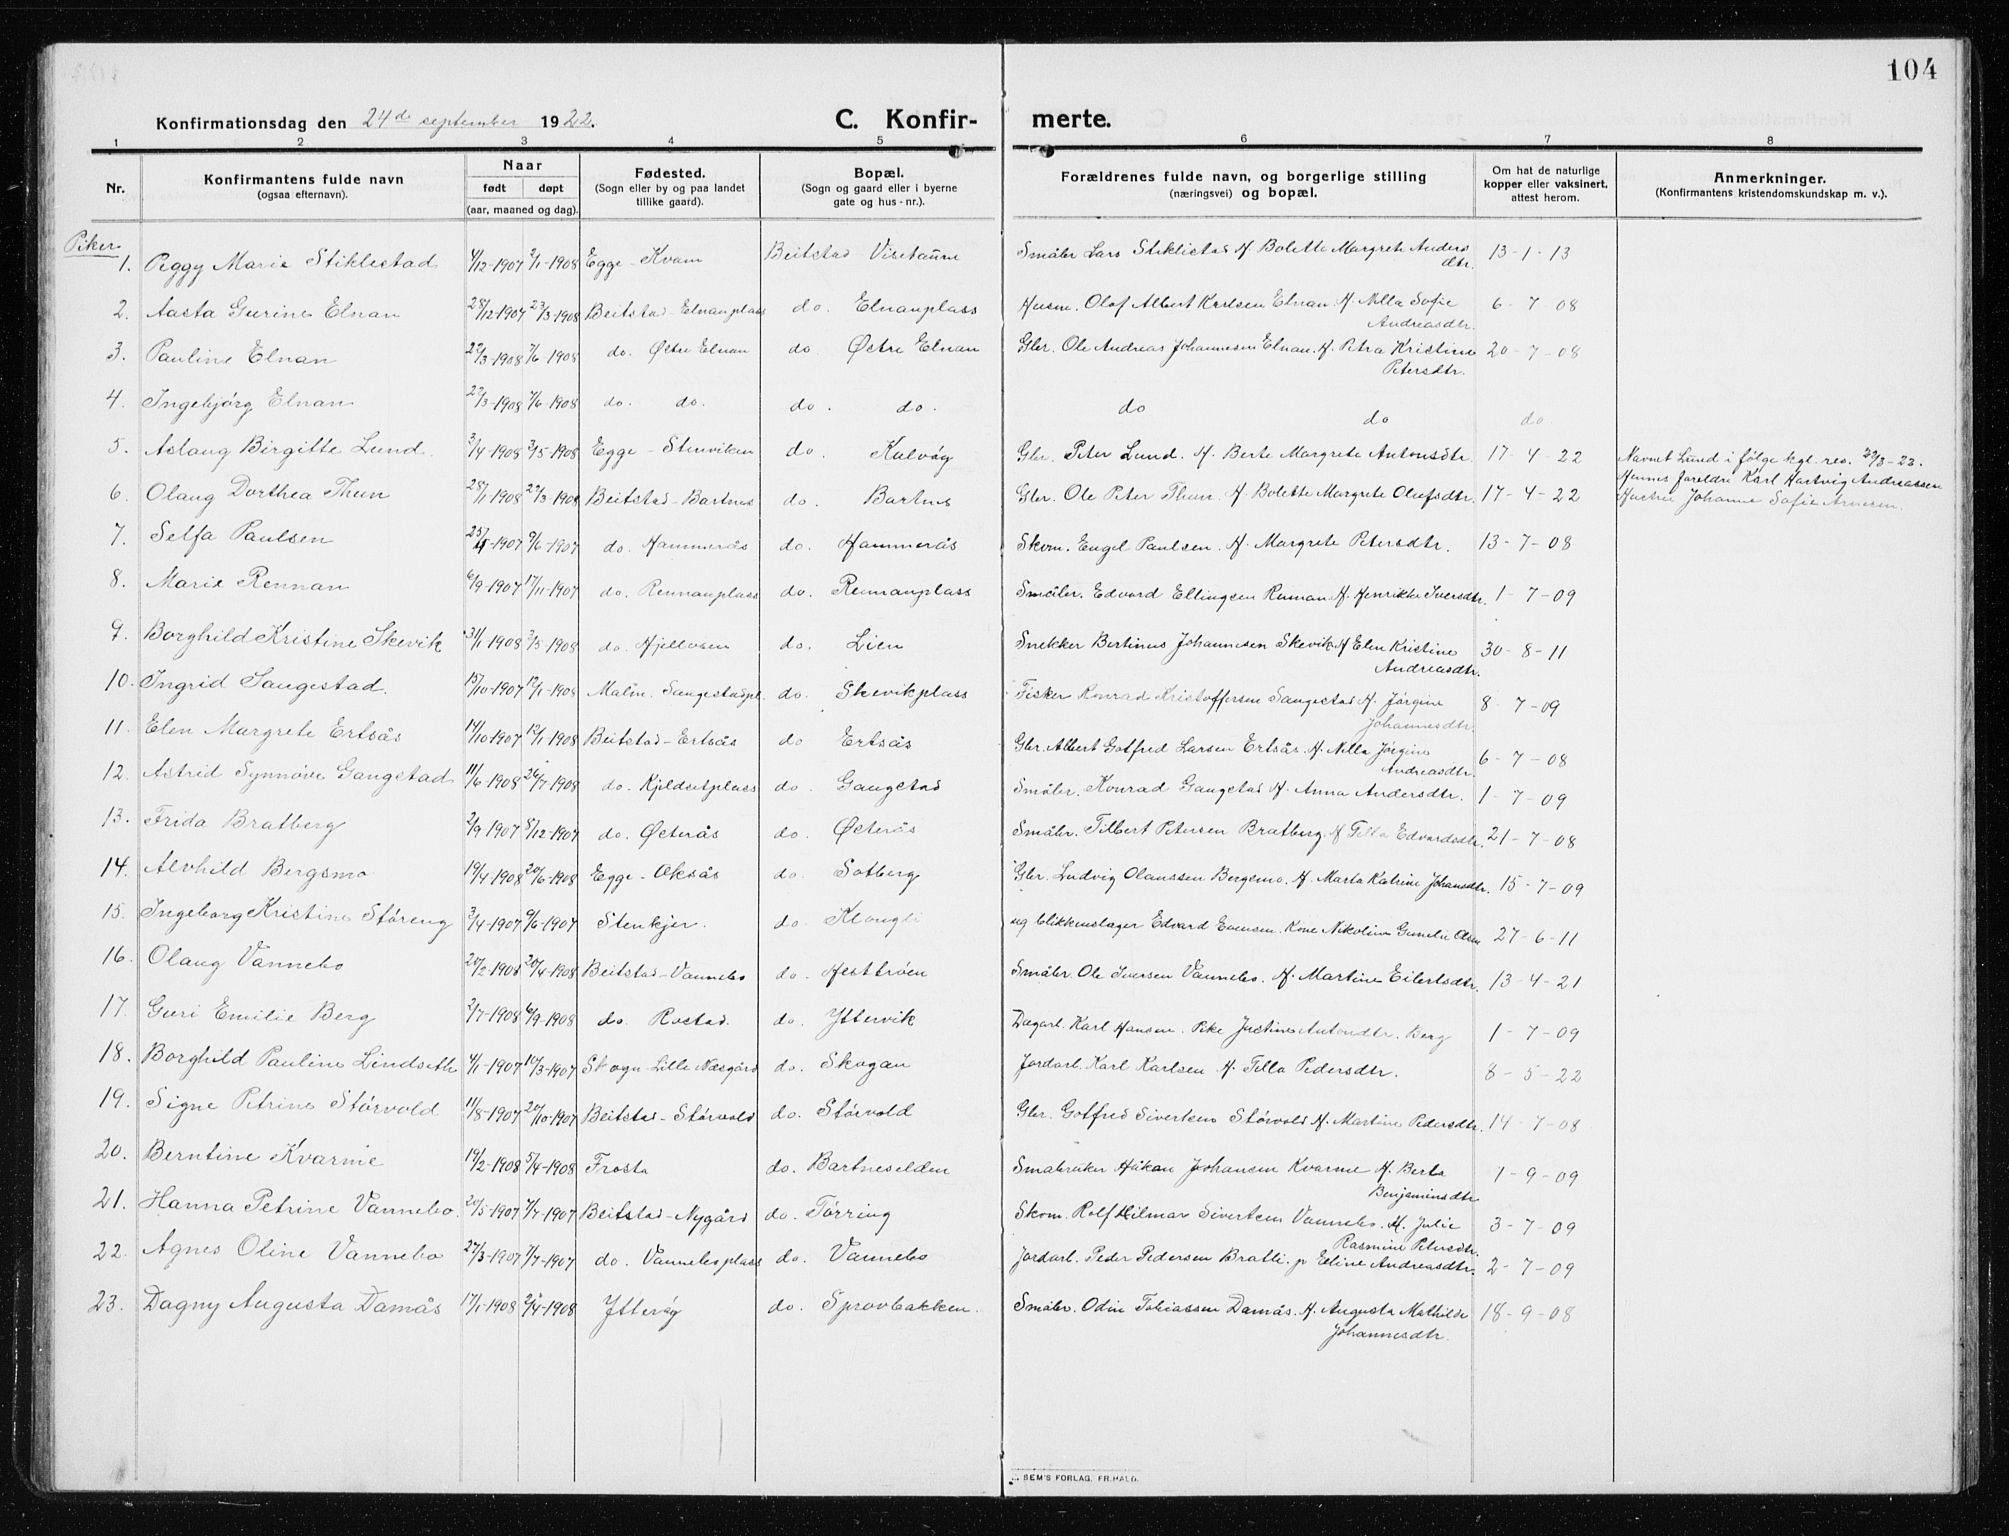 104
Konfirmationsdag den 24de september 1922.
C. Konfir- merte.
1 2 3 4 5 6 7 8
Nr.
Konfirmantens fulde navn
(ogsaa efternavn).
Naar
født døpt
(aar, maaned og dag).
Fødested.
(Sogn eller by og paa landet
tillike gaard).
Bopæl.
(Sogn og gaard eller i byerne
gate og hus-nr.).
Forældrenes fulde navn, og borgerlige stilling
(næringsvei) og bopæl.
Om hat de naturlige
kopper eller vaksinert,
attest herom.
Anmerkninger.
(Konfirmantens kristendomskundskap m. v.).
Piker
1. Peggy Marie Stiklestad 4/12-1907 2/1-1908 Egge - Kvam Beitstad - Smålbr Lars Stiklestad H Bolette Margrete Anders 13-1-13
dtr.
2. Aasta Gurine Elnan 28/12-1907 23/3-1908 Beitstad - Elnanplass do. Elnanplass Husm. Olof Albert Karlsen Elnan. H. Nella Sofie 6-7-08
Andreasdtr.
3. Pauline Elnan 22/3-1908 7/6-1908 do. Østre Elnan do Østre Elnan Gbr. Ole Andreas Johannesen Elnan. H. Petra Kristine 20-7-08
Petersdtr.
4. Ingebjørg Elnan 22/3-1908 7/6-1908 do. do. do. do. do do do.
5. Aslaug Birgitte Lund. 3/4-1908 3/5-1908 Egge - Stenviken do. Kalvøy Gbr. Peter Lund. H. Berte Margrete Antonsdtr. 17-4-22 Navnet Lund i følge kgl. res. 22/3-23.
6. Olaug Dorthea Thun 28/1-1908 22/3-1908 Beitstad - Bartnes do. Bartnes Gbr. Ole Peter Thun. H. Bolette Margrete Olufsdtr. 17-4-22 Hennes foreldre Karl Hartvig Andreassen
Hustru Johanne Sofie Arnesen.
7. Selfa Paulsen 25/4-1907 9/6-1907 do. Hammerås do. Hammerås Skom. Engel Paulsen. H. Margrete Petersdtr. 13-7-08
8. Marie Rennan 6/9-1907 17/11-1907 do. Rennanplass do. Rennanplass Smålbr. Edvard Ellingsen Rennan H. Henrikke Iversdtr. 1-7-09
9. Borghild Kristine Skevik 31/1-1908 3/5-1908 do. Hjellosen do. Lien Snekker Bertinus Johannesen Skevik H Elen Kristine 30-8-11
Andreasdtr.
10. Ingrid Saugestad. 15/10-1907 12/1-1908 Malm. Saugestadpl. do. Skevikplass Fisker Konrad Kristoffersen Saugestad H. Jørgine 8-7-09
Johannesdtr.
11. Elen Margrete Ertsås 14/10-1907 12/1-1908 Beitstad - Ertsås do Ertsås Gbr. Albert Gotfred Larsen Ertsås. H. Nella Jørgine 6-7-08
Andreasdtr.
12. Astrid Synnøve Gangstad 11/6-1908 26/7-1908 do. Kjeldsetplass do. Gangstad Smålbr. Konrad Gangstad H. Anna Andersdtr. 1-7-09
13. Frida Bratberg 2/9-1907 8/12-1907 do. Østerås do. Østerås Smålbr. Tilbert Petersen Bratberg. H Tella Edvardsdtr. 21-7-08
14. Alvhild Bergsmo 19/4-1908 20/6-1908 Egge - Oksås do. Solberg Gbr. Ludvig Olaussen Bergsmo. H. Marta Katrine Johansdtr. 15-7-09
15. Ingeborg Kristine Støreng 3/4-1907 9/6-1907 Stenkjer. do. Klougli ug blikkenslager Edvard Evensen. Kone Nikoline Gunelie Olsen 27-6-11
16. Olaug Vannebo 20/2-1908 20/4-1908 Beitstad - Vannebo do. Hesttrøen Smålbr. Ole Iversen Vannebo. H. Martine Eilertsdtr. 13-4-21
17. Guri Emilie Berg 2/7-1908 6/9-1908 do. Rostad. do. Yttervik Dagarb. Karl Hansen. Pike Justine Antondtr. Berg 1-7-09
18. Borghild Pauline Lindseth 4/1-1907 10/3-1907 Skogn - Lille Næsgård do. Skogan Jordarb. Karl Karlsen H. Tella Pedersdtr. 8-5-22
19. Signe Petrine Størvold 11/8-1907 20/10-1907 Beitstad - Størvold do. Størvold Gbr. Gotfred Sivertsen Størvold H. Martine Pedersdtr. 14-7-08
20. Berntine Kvarme 19/2-1908 5/4-1908 Frosta do. Bartneselden Småbruker Håkan Johansen Kvarme H. Berta 1-9-09
Benjaminsdtr
21. Hanna Petrine Vannebo. 20/5-1907 7/7-1907 Beitstad - Nygård do. Tørring Skom. Rolf Hilmar Sivertsen Vannebo. H. Julie 3-7-09
Rasmine Petersdtr.
22. Agnes Oline Vannebo 27/3-1907 7/7-1907 do. Vanneboplass do. Vannebo Jordarb. Peder Pedersen Bratli. p Eline Andreasdtr. 2-7-09
23. Dagny Augusta Damås 17/1-1908 2/4-1908 Ytterøy do. Sprovbakken. Smålbr. Odin Tobiassen Damås. H. Augusta Mathilde 18-9-08
Johannesdtr.
SEM'S FORLAG, FR.HALD.